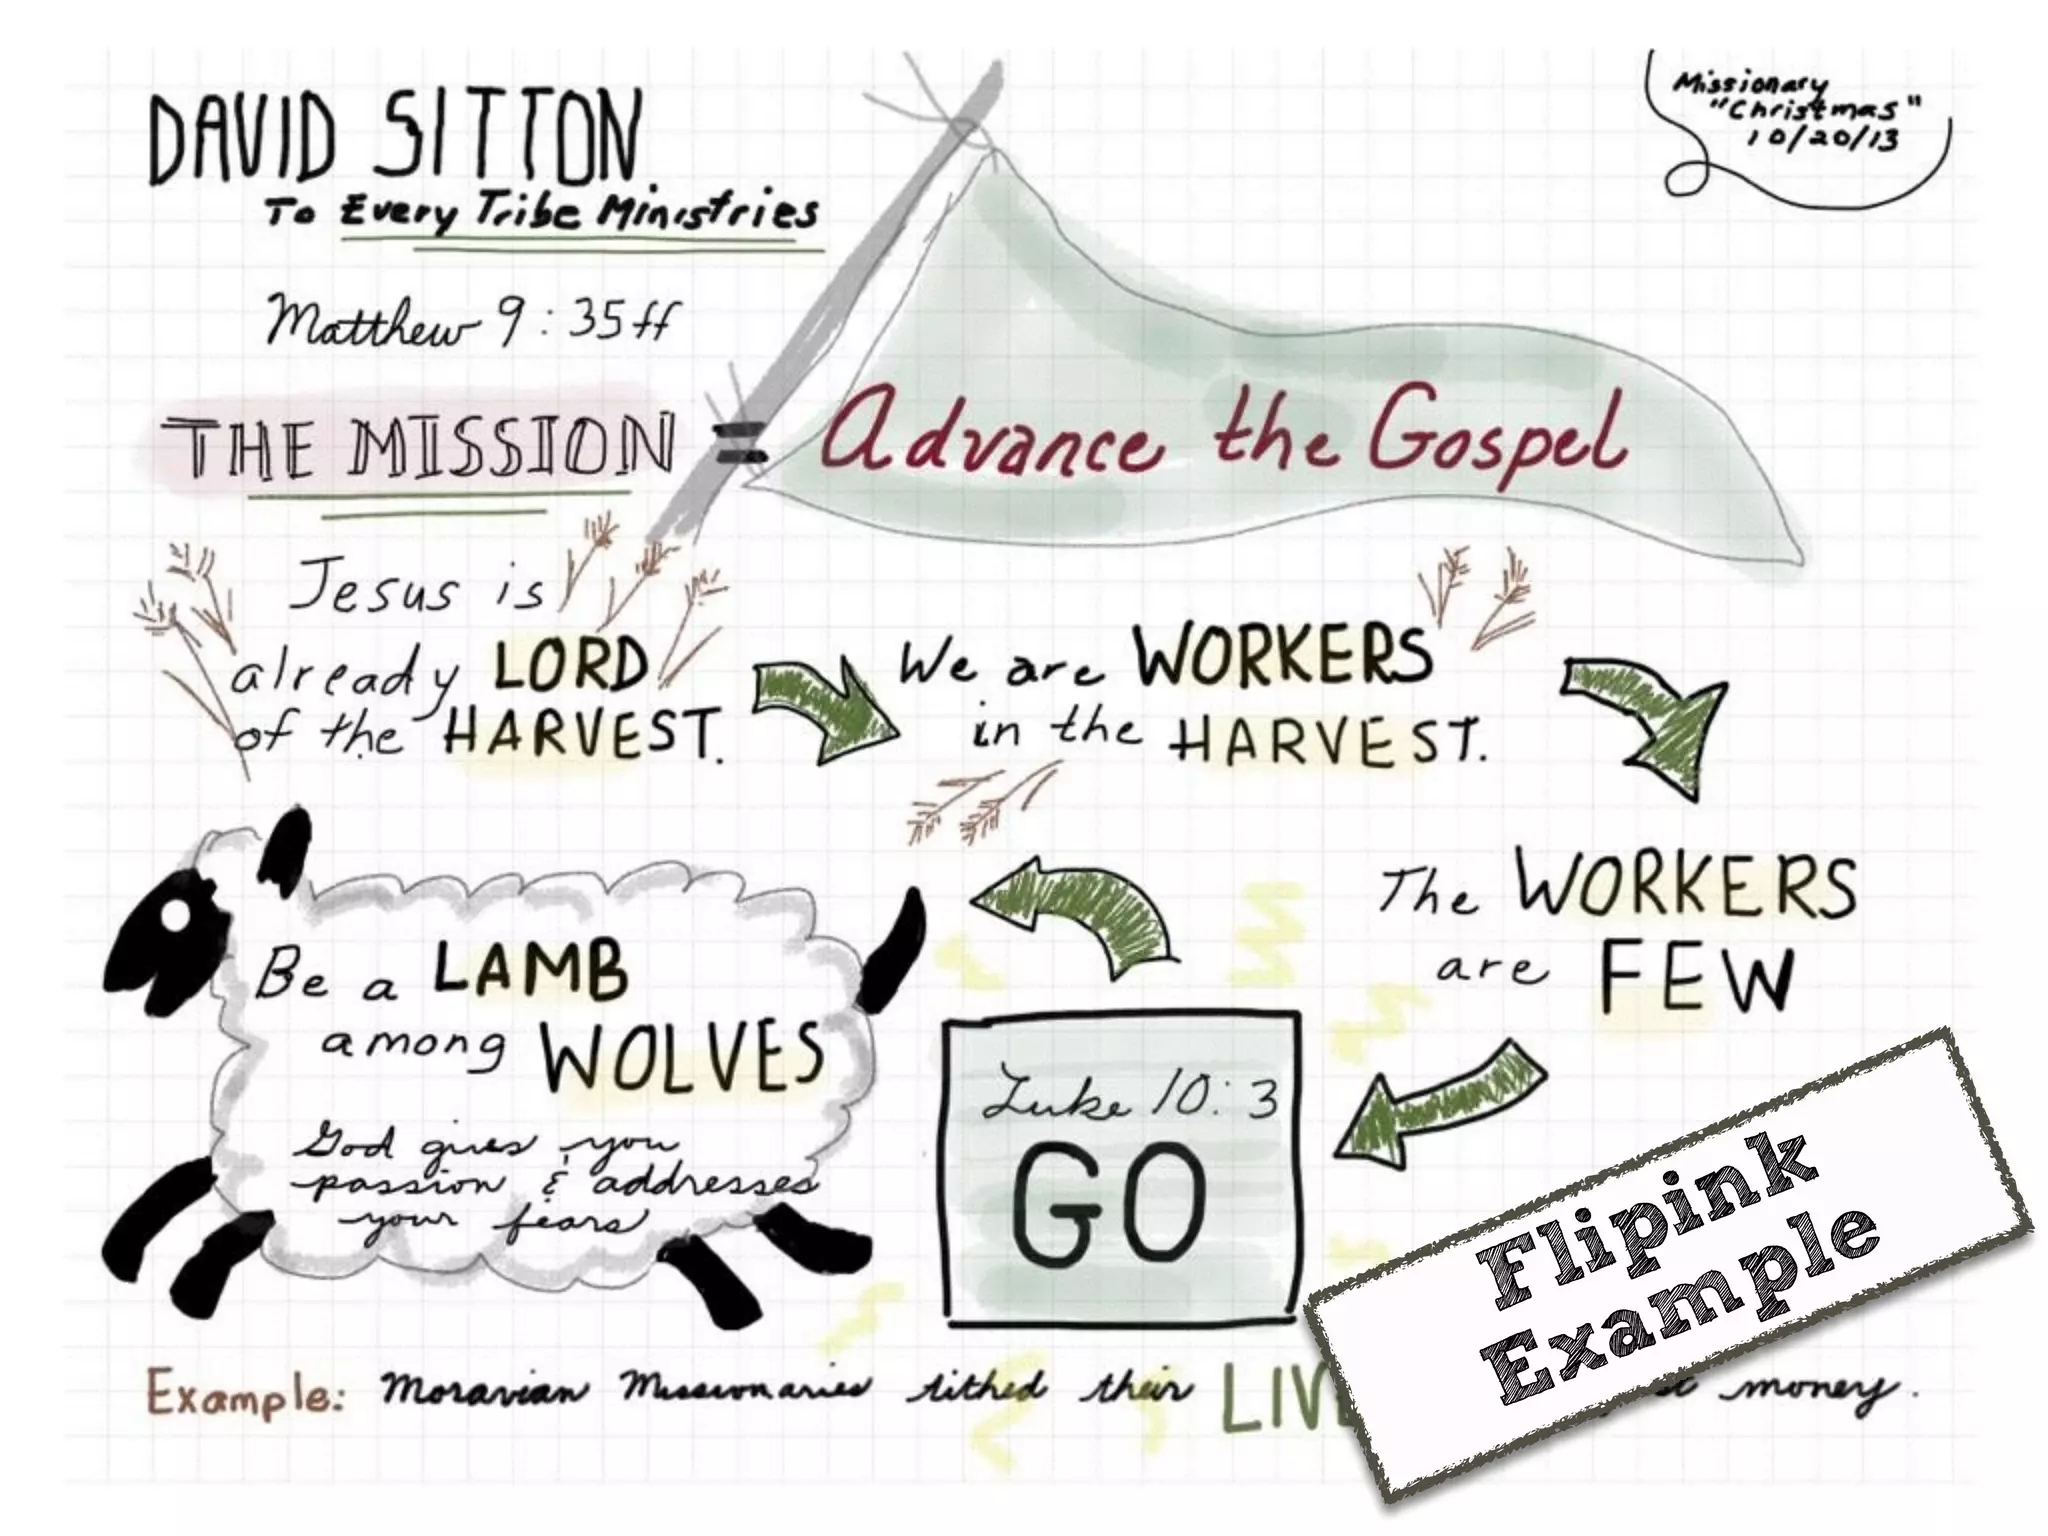 DAVID SITTON
To Every Tribe Ministries
Missionary
"Christmas"
10/20/13
Matthew 9:35ff
THE MISSION = Advance the Gospel
Jesus is
already LORD
of the HARVEST.
We are WORKERS
in the HARVEST.
The WORKERS
are FEW
Luke 10:3
GO
Be a LAMB
among WOLVES
God gives you
passion & addresses
your fears
Flipink
Example
Example: Moravian Missionaries tithed their money.